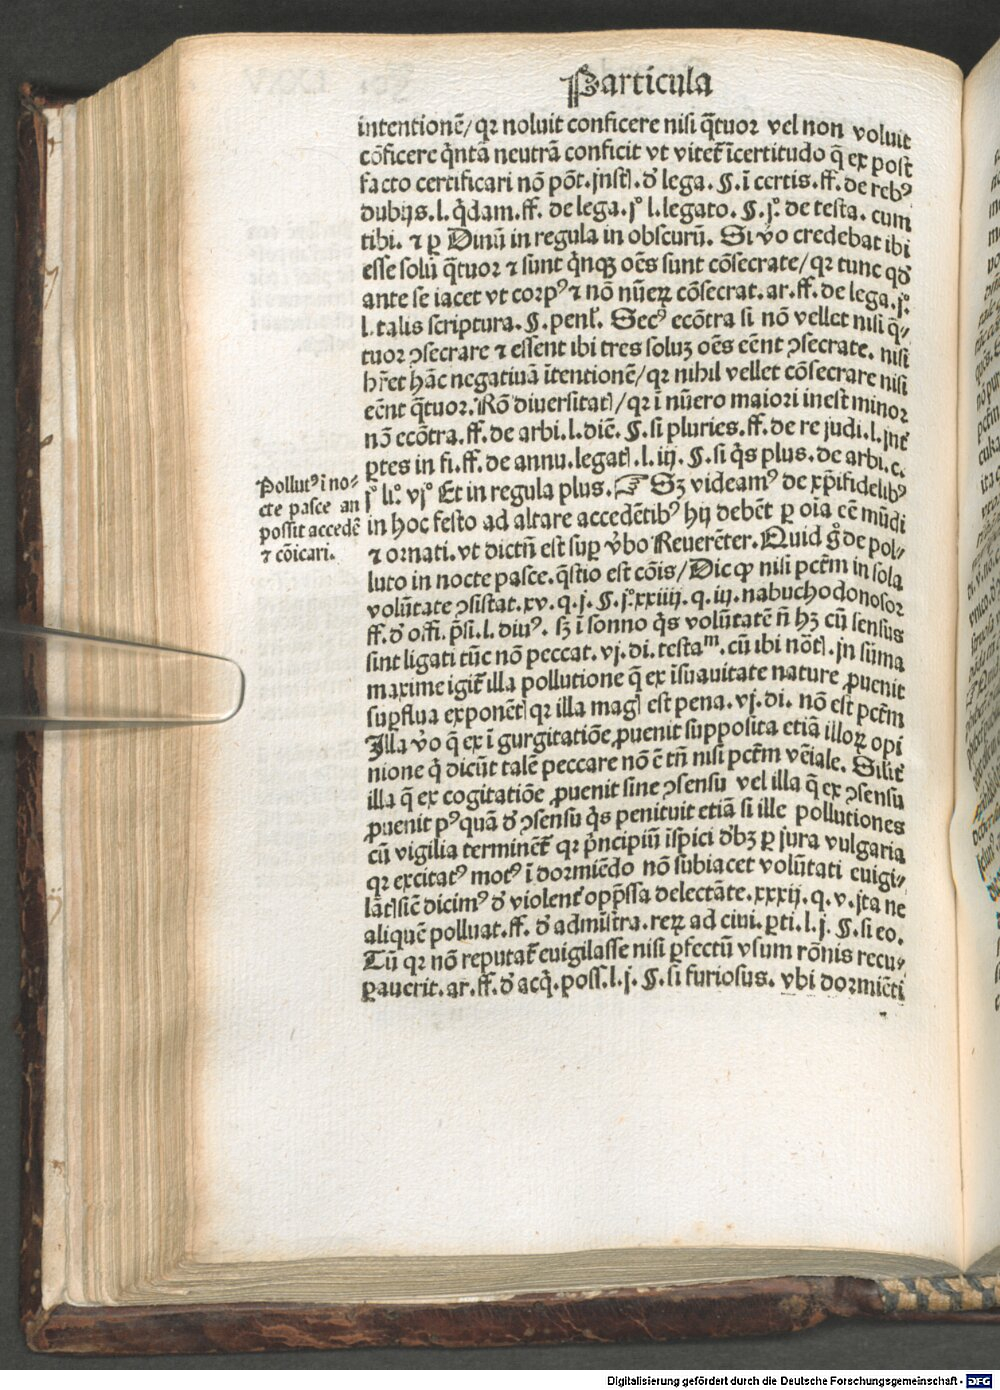 Particula
intentionē/ qꝛ noluit conficere nisi q̄tuor vel non voluit
cōficere q̇ntā neutrā conficit vt vitet᷑ īcertitudo q̄ ex post
facto certificari nō pōt. jnstꝭ. ꝺ̓ lega. §. ī certis. ff. de rebꝰ
dubijs. l. q̇dam. ff. de lega. jͦ l. legato. §. jͦ. de testa. cum
tibi. ⁊ ꝑ Dinū in regula in obscurū. Si v̓o credebat ibi
esse solū q̄tuor ⁊ sunt q̇nqꝫ oēs sunt cōsecrate/ qꝛ tunc qd̓
ante se iacet vt corpꝰ ⁊ nō nūeꝝ cōsecrat. ar. ff. de lega. jͦ.
l. talis scriptura. §. penl̓. Secꝰ ecōtra si nō vellet nisi q̄-
tuor ꝯsecrare ⁊ essent ibi tres soluꝫ oēs eēnt ꝯsecrate. nisi
hr̄et hāc negatiuā ītentionē/ qꝛ nihil vellet cōsecrare nisi
eēnt q̄tuor. Rō diuersitatꝭ/ qꝛ ī nūero maiori inest minor
nō ecōtra. ff. de arbi. l. diē. §. si pluries. ff. de re judi. l. jnt̓
ꝑtes in fi. ff. de annu. legatꝭ. l. iij. §. si q̇s plus. de arbi. c.
jͦ li. vjͦ Et in regula plus. ☞ Sꝫ videamꝰ de xp̄ifidelibꝰ
Pollutꝰ ī no-
cte pasce an
possit accedē
⁊ cōicari.
in hoc festo ad altare accedētibꝰ hij debēt ꝑ oīa eē mūdi
⁊ ornati. vt dictū est suꝑ v̓bo Reuerēter. Quid g̊ de pol-
luto in nocte pasce. q̄stio est cōis/ Dic ꝙ nisi pctm̄ in sola
volūtate ꝯsistat. xv. q. j. §. jͦ. xxiiij. q. iij. nabuchodonosor
ff. ꝺ̓ offi. p̄si. l. diuꝰ. sꝫ ī sonno q̇s volūtatē n̄ hꝫ cū sensus
sint ligati tūc nō peccat. vj. di. testaᵐ. cū ibi nōtꝭ. jn sūma
maxime igit᷑ illa pollutione q̄ ex īsuauitate nature ꝓuenit
suꝑflua exponētꝭ qꝛ illa magꝭ est pena. vj. di. nō est pctm̄
Illa v̓o q̄ ex ī gurgitatiōe ꝓuenit supposita etiā illoꝝ opi
nione q̇ dicūt talē peccare nō ē tn̄ nisi pctm̄ vēiale. Silit̓
illa q̄ ex cogitatiōe ꝓuenit sine ꝯsensu vel illa q̄ ex ꝯsensu
ꝓuenit pꝰquā ꝺ̓ ꝯsensu q̇s penituit etiā si ille pollutiones
cū vigilia terminēt᷑ qꝛ p̓ncipiū īspici ꝺ̓bꝫ ꝑ jura vulgaria
qꝛ excitatꝰ motꝰ ī dormiēdo nō subiacet volūtati euigi-
lātꝭ sic̄ dicimꝰ ꝺ̓ violent̓ opp̄ssa delectāte. xxxij. q. v. jta ne
aliquē polluat. ff. ꝺ̓ admīstra. reꝝ ad ciui. ꝑti. l. j. §. si eo.
Tū qꝛ nō reputat᷑ euigilasse nisi ꝑfectū vsum rōnis recu-
ꝑauerit. ar. ff. ꝺ̓ acq̇. poss. l. j. §. si furiosus. vbi dormiēti
Digitalisierung gefördert durch die Deutsche Forschungsgemeinschaft - DFG